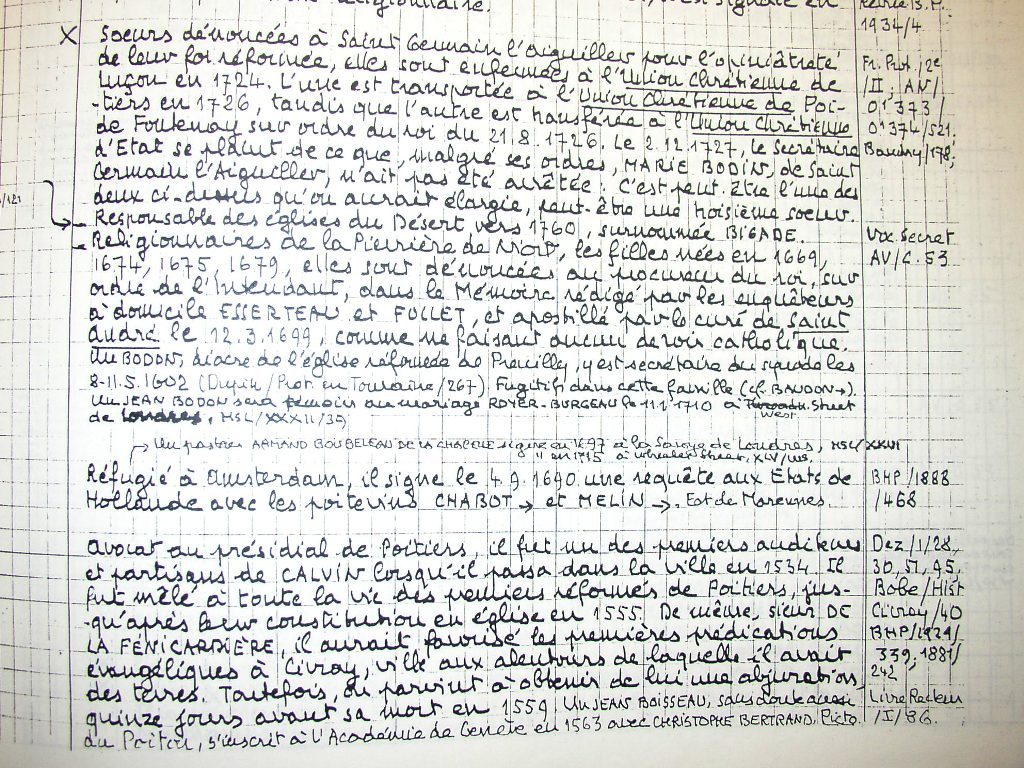 religionnaire.
signalé en
B.M.
1934/4
X Soeurs dénoncées à Saint Germain l'Aiguiller pour l'opiniâtreté
de leur foi réformée, elles sont enfermées à l'Union Chrétienne de
Luçon en 1724. L'une est transportée à l'Union Chrétienne de Poi-
-tiers en 1726, tandis que l'autre est transférée à l'Union Chrétienne
de Fontenay sur ordre du roi du 21.8.1726. Le 2.12.1727, le secrétaire
d'Etat se plaint de ce que, malgré ses ordres, MARIE BODIN, de Saint
Germain l'Aiguiller, n'ait pas été arrêtée. C'est peut-être l'une des
deux ci-dessus qu'on aurait élargie, peut-être une troisième soeur.
Fr. Prot./2e
/II; AN/
O1 373/
O1 374/521.
Baudry/178;
/121
- Responsable des églises du Désert vers 1760, surnommée BIGADE.
- Religionnaires de la Pierrière de Niort, les filles nées en 1669,
1674, 1675, 1679, elles sont dénoncées au procureur du roi, sur
ordre de l'Intendant, dans le Mémoire rédigé par les enquêteurs
à domicile ESSERTEAU et FOLLET, et apostillé par le curé de Saint
André le 12.3.1699, comme ne faisant aucun devoir catholique.
Vox. Secret
AV/C.53
Un BODON, diacre de l'église réformée de Preuilly, y est secrétaire du synode les
8-11.5.1602 (Dupin/Prot. en Touraine/267). Fugitifs dans cette famille (cf. BAUDON→).
Un JEAN BODON sera témoin au mariage ROYER-BURGEAU le 11.1.1710 à Street
West
de Londres, HSL/XXXII/35
→ Un pasteur ARMAND BOUBELEAU DE LA CHAPELLE signe en 1697 à la Savoye de Londres, HSL/XXVI
" en 1715 à Wheeler Street, XLV/
Réfugié à Amsterdam, il signe le 4.9.1690 une requête aux Etats de
Hollande avec les poitevins CHABOT → et MELIN →. Est de Marennes.
BHP/1888
/468
Avocat au présidial de Poitiers, il fut un des premiers auditeurs
et partisans de CALVIN lorsqu'il passa dans la ville en 1534. Il
fut mêlé à toute la vie des premiers réformés de Poitiers, jus-
-qu'après leur constitution en église en 1555. De même, sieur DE
LA FENICARDIÈRE, il aurait favorisé les premières prédications
évangéliques à Civray, ville aux alentours de laquelle il avait
des terres. Toutefois, on parvint à obtenir de lui une abjuration,
quinze jours avant sa mort en 1559. Un JEAN BOISSEAU, sans doute aussi
du Poitou, s'inscrit à l'Académie de Genève en 1563 avec CHRISTOPHE BERTRAND, Picto.
Dez/1/28,
30, 51, 95.
Bobe/Hist
Civray/40
BHP/1924/
339, 1881/
242
Livre Recteur
/I/86.